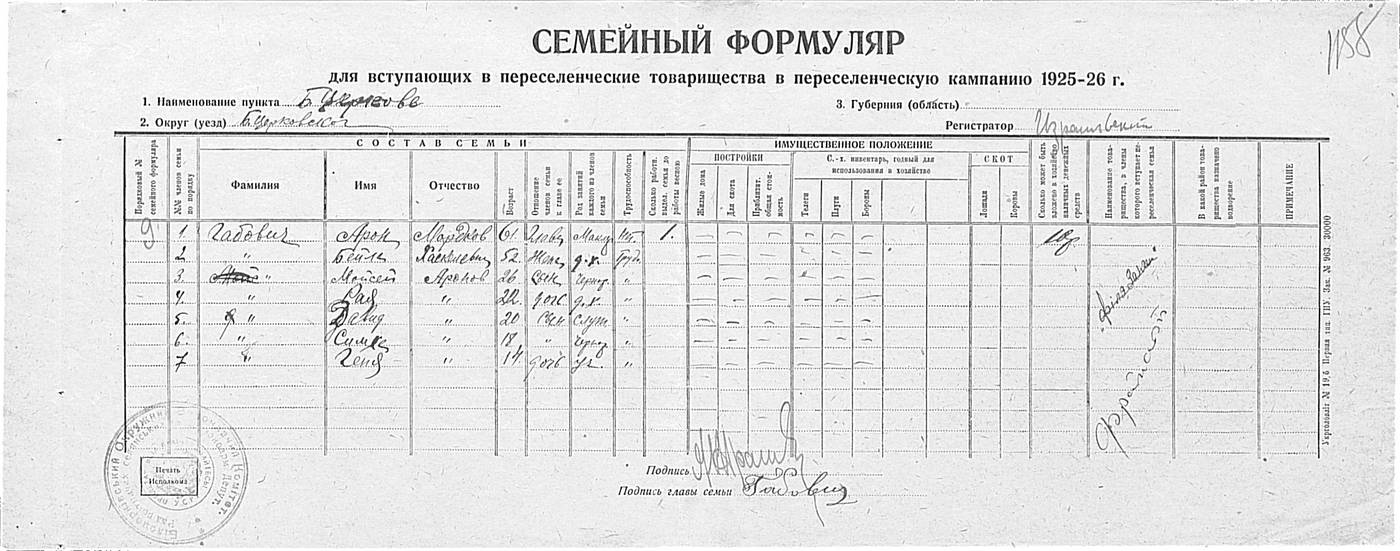 1158
СЕМЕЙНЫЙ ФОРМУЛЯР
для вступающих в переселенческие товарищества в переселенческую кампанию 1925-26 г.
1. Наименование пункта Б. Церковь
3. Губерния (область)
2. Округ (уезд) Б. Церковской
Регистратор
СОСТАВ СЕМЬИ
ИМУЩЕСТВЕННОЕ ПОЛОЖЕНИЕ
ПОСТРОЙКИ
С.-х. инвентарь, годный для использования в хозяйстве
СКОТ
Порядковый № семейного формуляра
№№ членов семьи по порядку
Фамилия
Имя
Отчество
Возраст
Отношение членов семьи к главе ее
Род занятий каждого из членов семьи
Трудоспособность
Сколько работн. выдел. семья до работы весною
Жилые дома
Для скота
Приблизит. общая стоимость
Телеги
Плуги
Бороны
Лошади
Коровы
Сколько может быть вложено в хозяйство наличных денежных средств
Наименование товарищества, в члены которого вступает переселенческая семья
В какой район товарищества назначено водворение
ПРИМЕЧАНИЕ
9 1. Габович Арон Мордков 61 Глав. 1.
2 " Бейла Хаскелевна 52 Жена д.х. Труд.
3. " Мойсей Аронов 26 сын Чернор "
4. " Рая " 22 дочь д.х. "
5. " Давид " 20 сын служ "
6. " Симха " 18 " Чернор "
7 " Геня " 14 дочь уч. "
Укрголовліт № 19,6 Первая тип. ГПУ. Зак. № 963 30000
Печать Исполкома
Подпись
Подпись главы семьи Габович